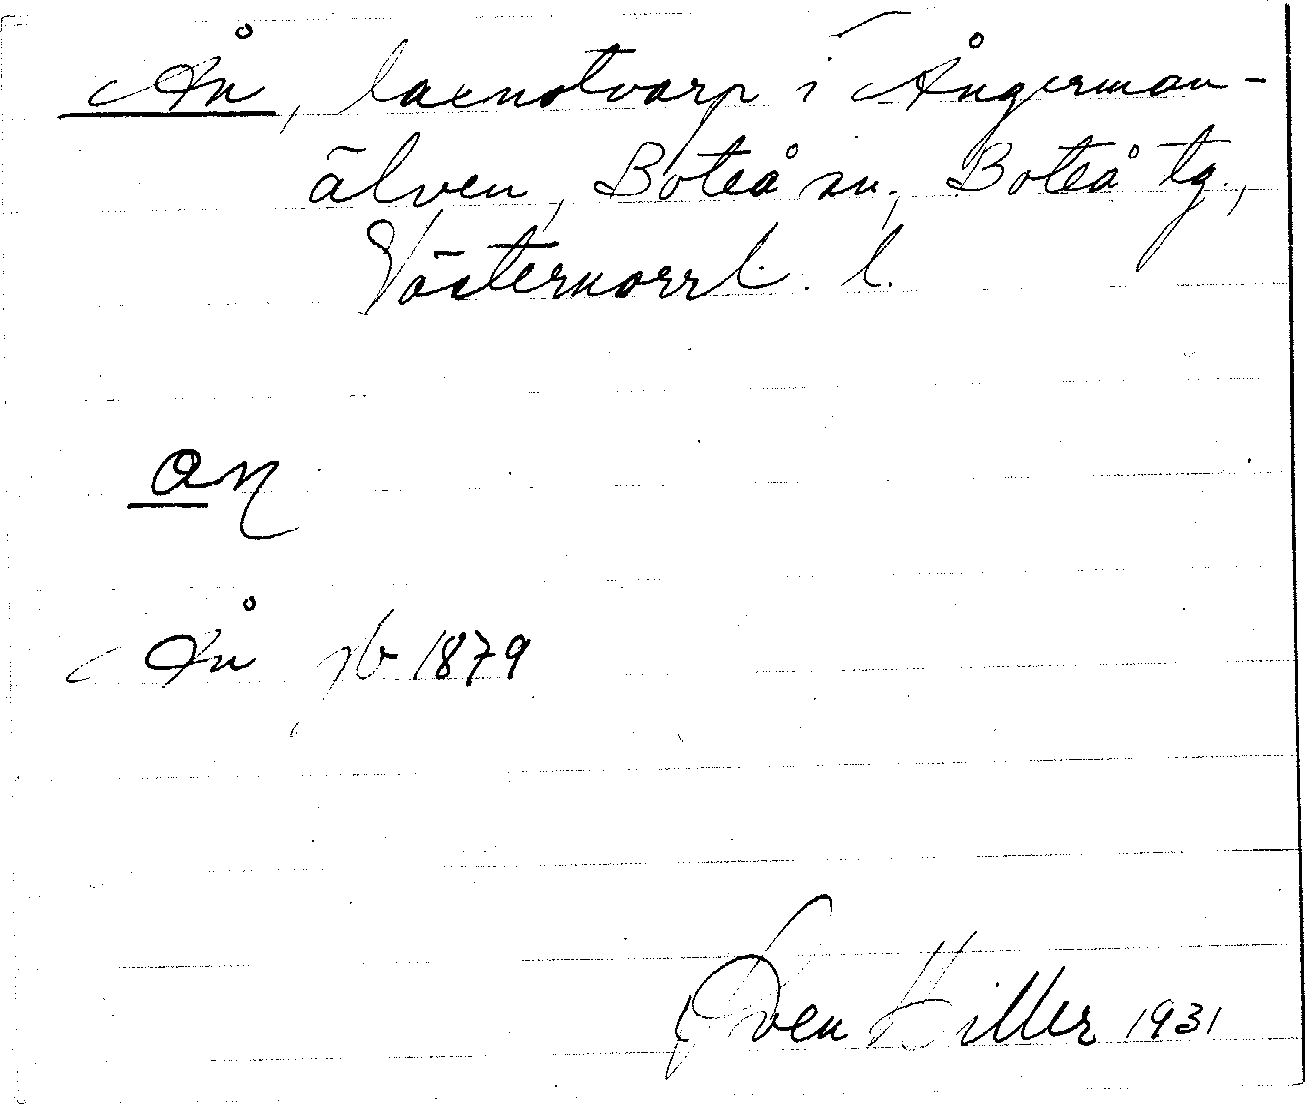 Ån, laxnotvarp i Ångerman-
älven, Boteå sn, Boteå tg.,
Västernorrl. l.
an
Ån jb 1879
Sven Hiller 1931